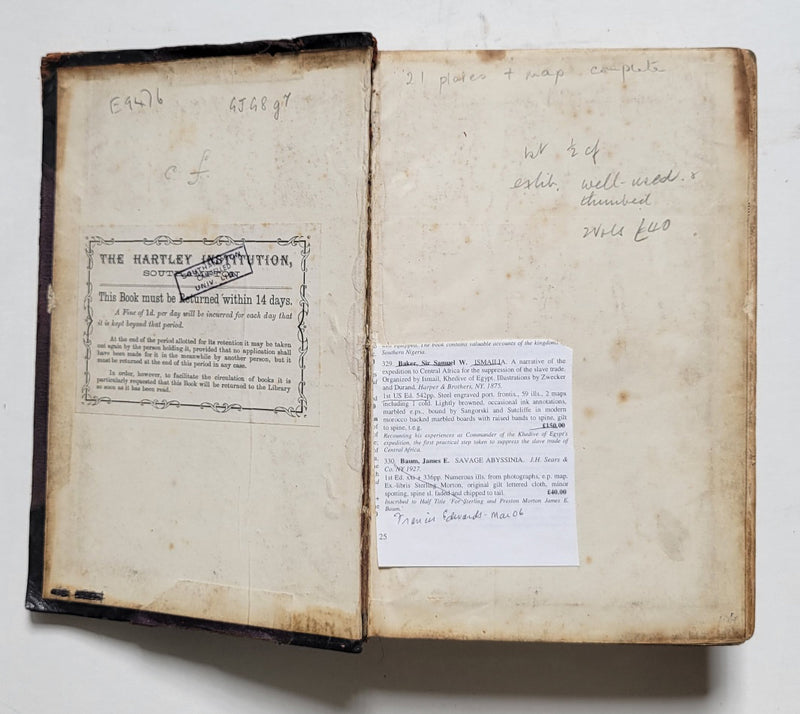 E9476 GJG8g7
c f.
THE HARTLEY INSTITUTION,
SOUTHAMPTON
UNIV. LIBY
This Book must be Returned within 14 days.
A Fine of 1d. per day will be incurred for each day that
it is kept beyond that period.
At the end of the period allotted for its retention it may be taken
out again by the person holding it, provided that no application shall
have been made for it in the meanwhile by another person, but it
must be returned at the end of this period in any case.
In order, however, to facilitate the circulation of books it is
particularly requested that this Book will be returned to the Library
so soon as it has been read.
21 plates + map complete
exlib. well-used &
thumbed
2vols £40
The book contains valuable accounts of the kingdom
Southern Nigeria.
329 Baker, Sir Samuel W. ISMAILIA. A narrative of the
expedition to Central Africa for the suppression of the slave trade.
Organized by Ismail, Khedive of Egypt. Illustrations by Zwecker
and Durand. Harper & Brothers, NY. 1875.
1st US Ed. 542pp. Steel engraved port. frontis., 59 ills., 2 maps
including 1 cold. Lightly browned, occasional ink annotations,
marbled e.ps., bound by Sangorski and Sutcliffe in modern
morocco backed marbled boards with raised bands to spine, gilt
to spine, t.e.g. £150.00
Recounting his experiences as Commander of the Khedive of Egypt's
expedition, the first practical step taken to suppress the slave trade of
Central Africa.
330 Baum, James E. SAVAGE ABYSSINIA. J.H. Sears &
Co. NY 1927.
1st Ed. xxii + 336pp. Numerous ills. from photographs, e.p. map.
Ex-libris Sterling Morton, original gilt lettered cloth, minor
spotting, spine sl. faded and chipped to tail. £40.00
Inscribed to Half Title 'For Sterling and Preston Morton James E.
Baum.'
Francis Edwards - Mar 06
25